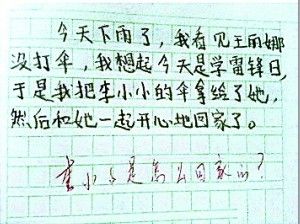 今天下雨了，我看见王丽娜
没打伞，我想起今天是学雷锋日，
于是我把李小小的伞拿给了她，
然后和她一起开心地回家了。
李小小是怎么回家的？